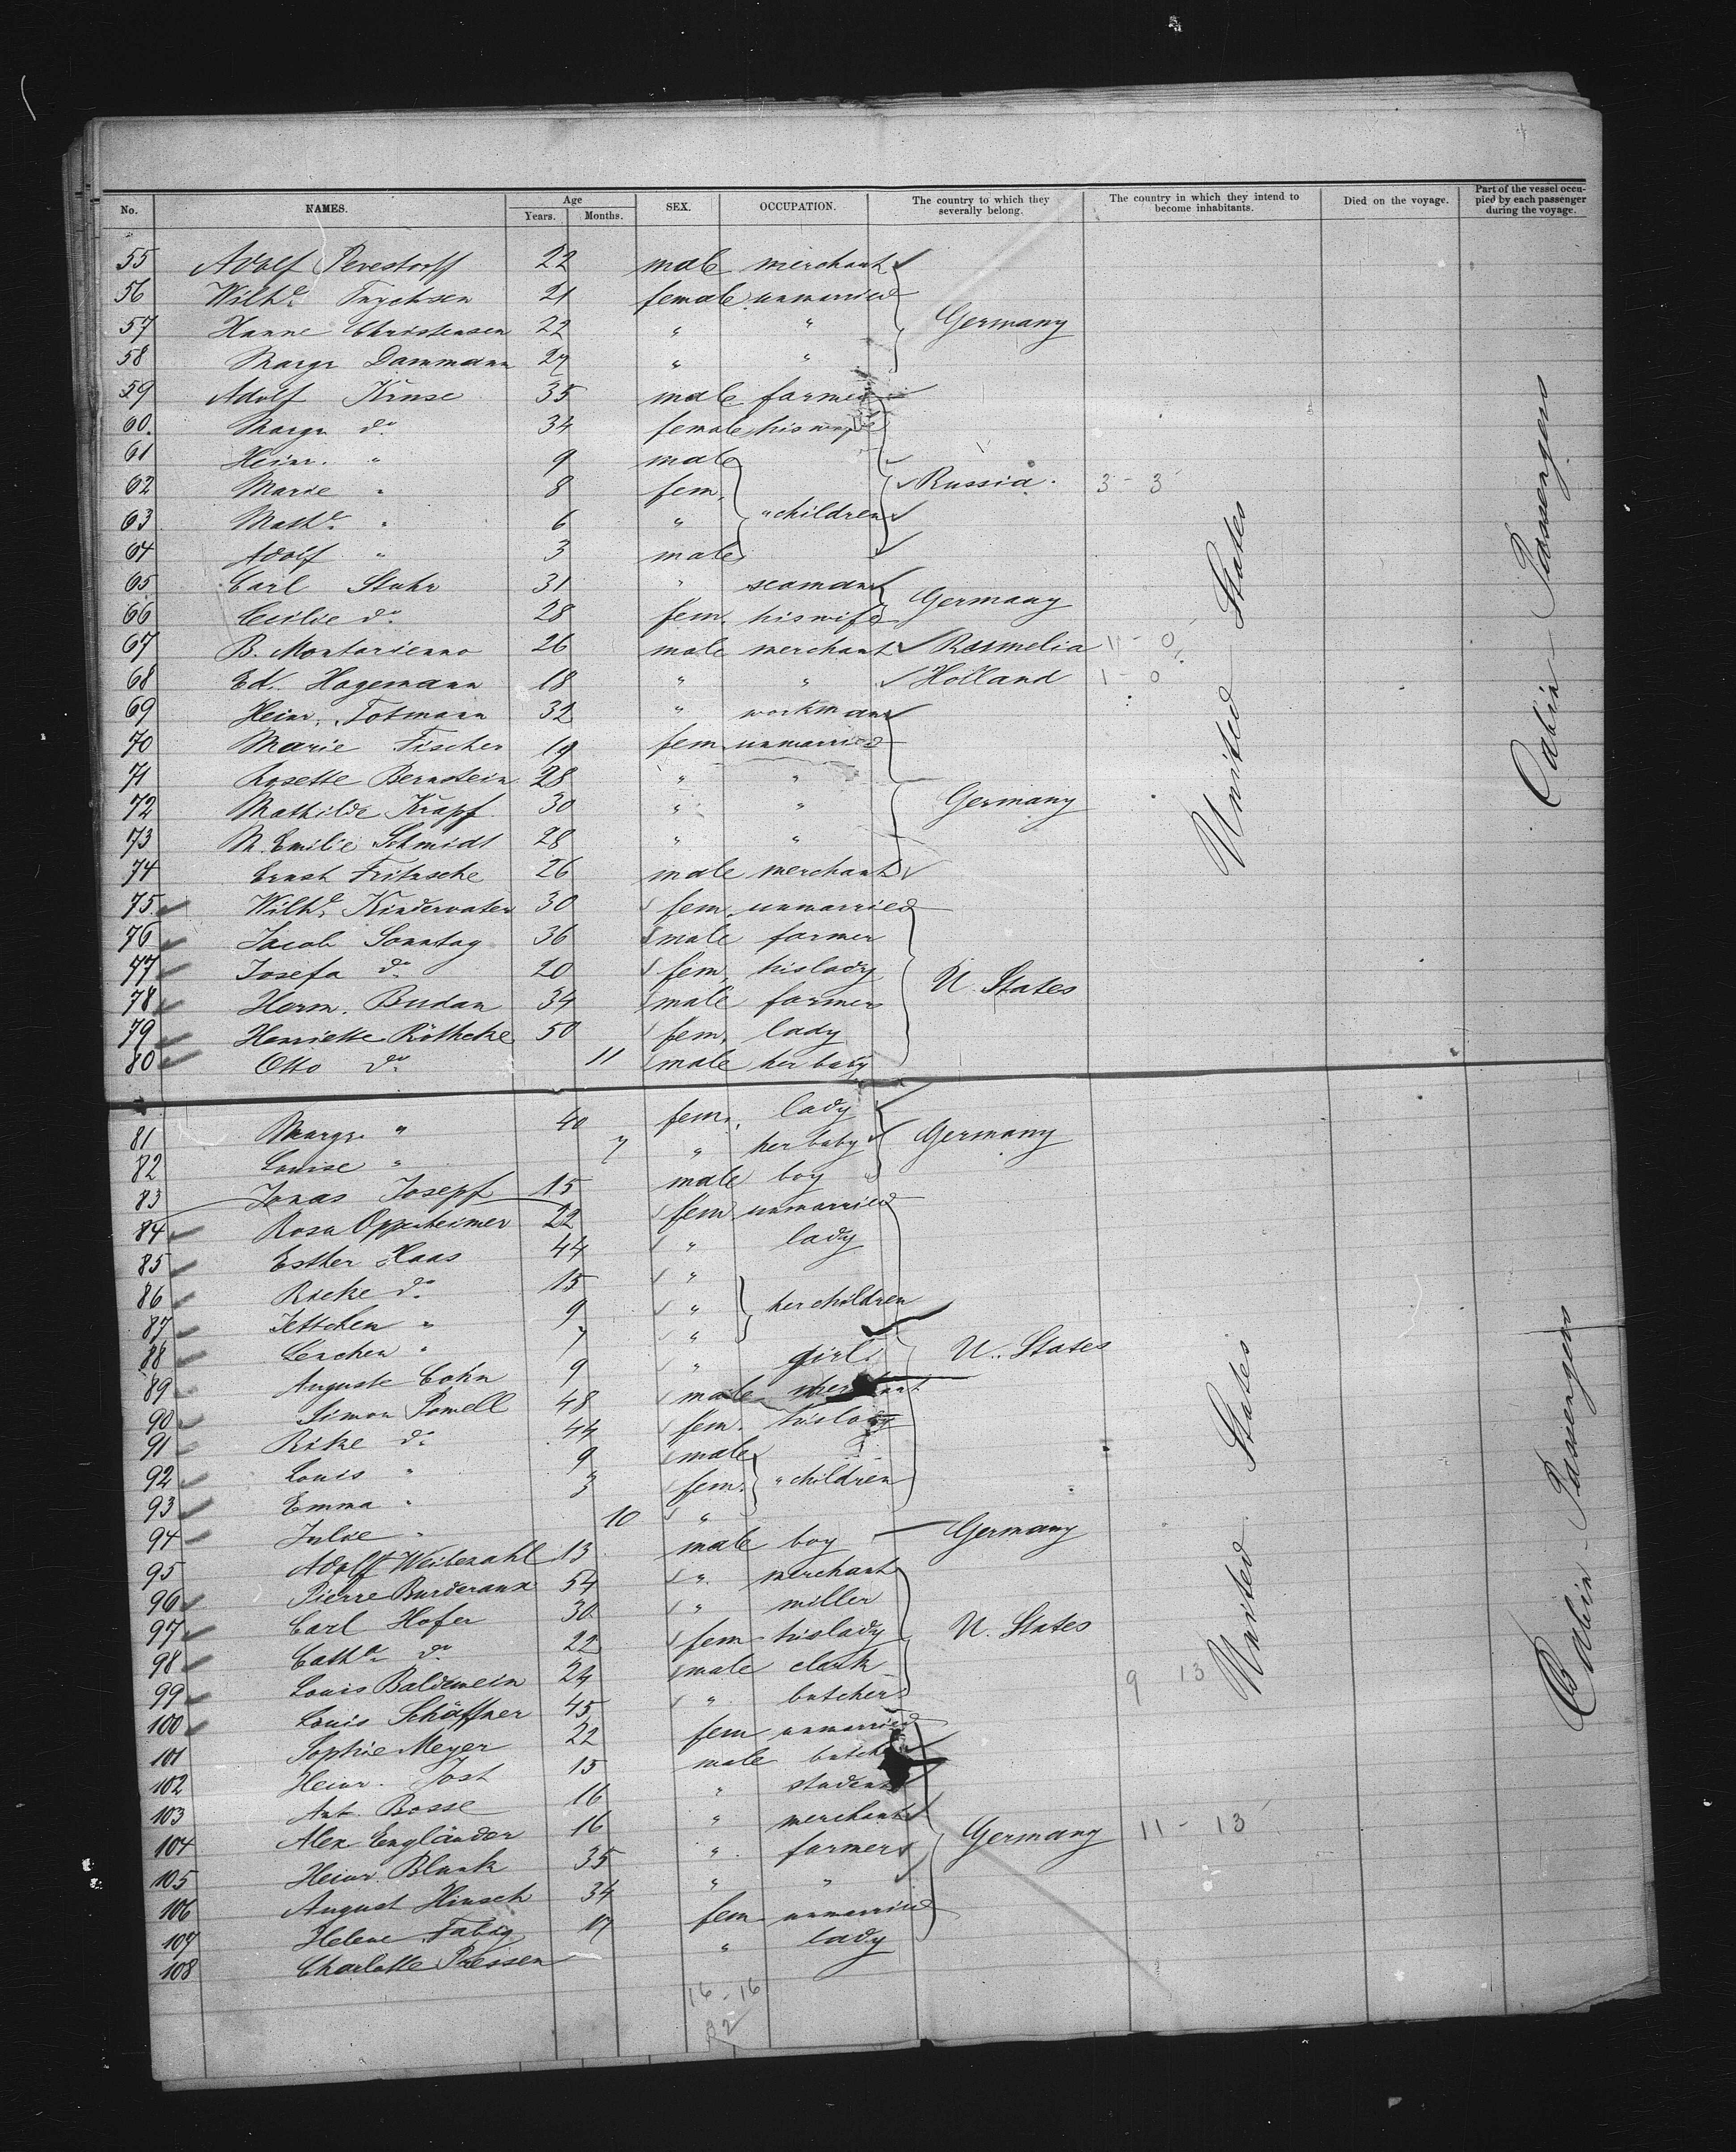 No. NAMES. Age Years. Months. SEX. OCCUPATION. The country to which they severally belong. The country in which they intend to become inhabitants. Died on the voyage. Part of the vessel occupied by each passenger during the voyage.
55 Adolf Pevestorff 22 male merchant
56 Wilhe. Tychsen 21 female unmarried
57 Hanne Christensen 22 " " Germany
58 Margr Dammann 27 " "
59 Adolf Kruse 35 male farmer
60. Margr do 34 female his wife
61 Heinr. " 9 male
62 Marie " 8 fem. Russia. 3 - 3
63 Mathe. " 6 " " children
64 Adolf " 3 male
65 Carl Stuhr 31 " seaman
66 Cecilie do 28 fem. his wife Germany
67 B. Montarienno 26 male merchant Roumelia 1 - 0
68 Ed. Hagemann 18 " " Holland 1 - 0
69 Heinr. Totmann 32 " workman
70 Marie Fischer 19 fem unmarried
71 Rosette Bernstein 28 " "
72 Mathilde Krapf 30 " " Germany
73 M. Emilie Schmidt 28 " "
74 Ernst Fritzsche 26 male merchant
75 Wilhe. Kindervater 30 fem. unmarried
76 Jacob Sonntag 36 male farmer
77 Josefa do 20 fem. his lady U. States
78 Herm. Budan 34 male farmer
79 Henriette Röthcke 50 fem. lady
80 Otto do 11 male her baby
United States
Cabin - Passengers
81 Margr. " 40 fem. lady
82 Louise " 7 " her baby Germany
83 Jonas Josepf 15 male boy
84 Rosa Oppenheimer 22 fem unmarried
85 Esther Haas 44 " lady
86 Ricke do 15 "
87 Jettchen " 9 " her children
88 Lenchen " 7 "
89 Auguste Cohn 9 " girl U. States
90 Simon Powell 48 male merchant
91 Rike do 44 fem. his lady
92 Louis " 9 male
93 Emma " 3 fem. " children
94 Julie " 10 "
95 Adolf Weibezahl 13 male boy Germany
96 Pierre Burderaux 54 " merchant
97 Carl Hofer 30 " miller
98 Catha do 22 fem his lady U. States
99 Louis Baldewein 24 male clerk
100 Louis Schäffner 45 " butcher 9 13
101 Sophie Meyer 22 fem unmarried
102 Heinr. Jost 15 male butcher
103 Ant. Bosse 16 " student
104 Alex Engländer 16 " merchant
105 Heinr. Blank 35 " farmer Germany 11 - 13
106 August Hinsch 34 " "
107 Helene Fabig 17 fem unmarried
108 Charlotte Piessen " lady
United States
Cabin - Passengers
16 - 16
32